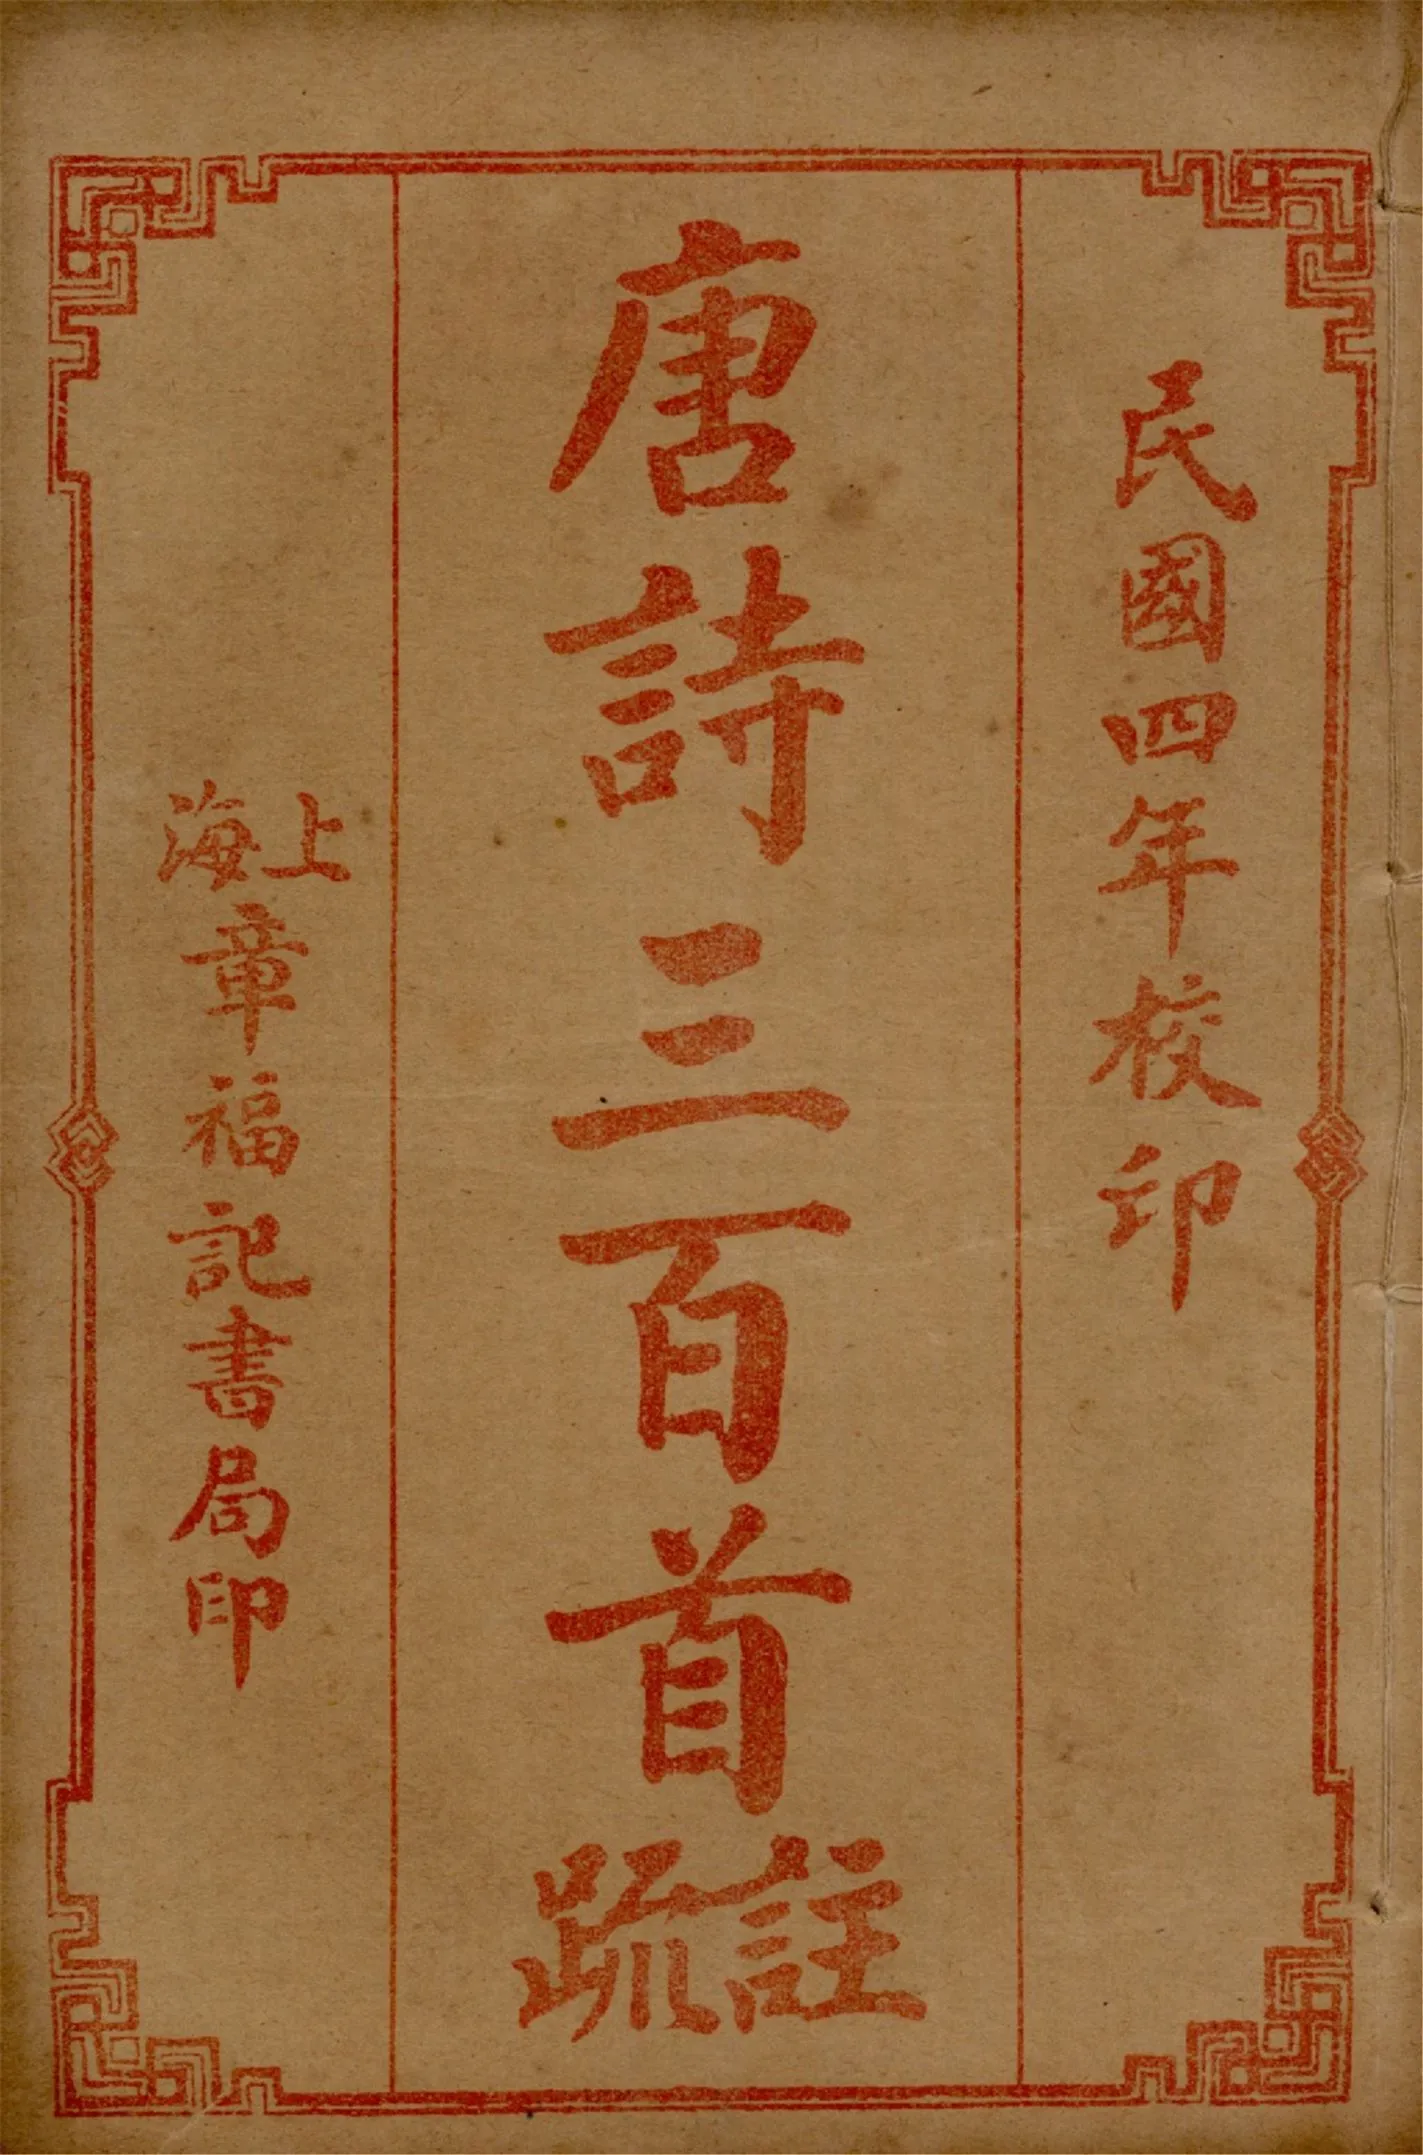 民國四年校印
唐詩三百首註疏
上海章福記書局印